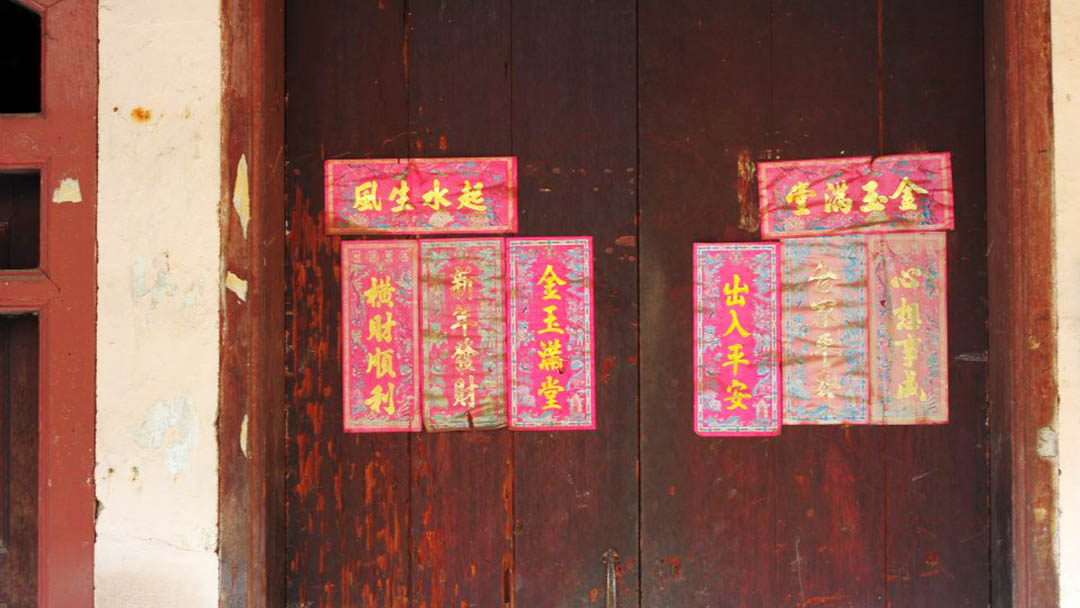 風生水起
橫財順利
新年發財
金玉滿堂
金玉滿堂
出入平安
合家平安
心想事成